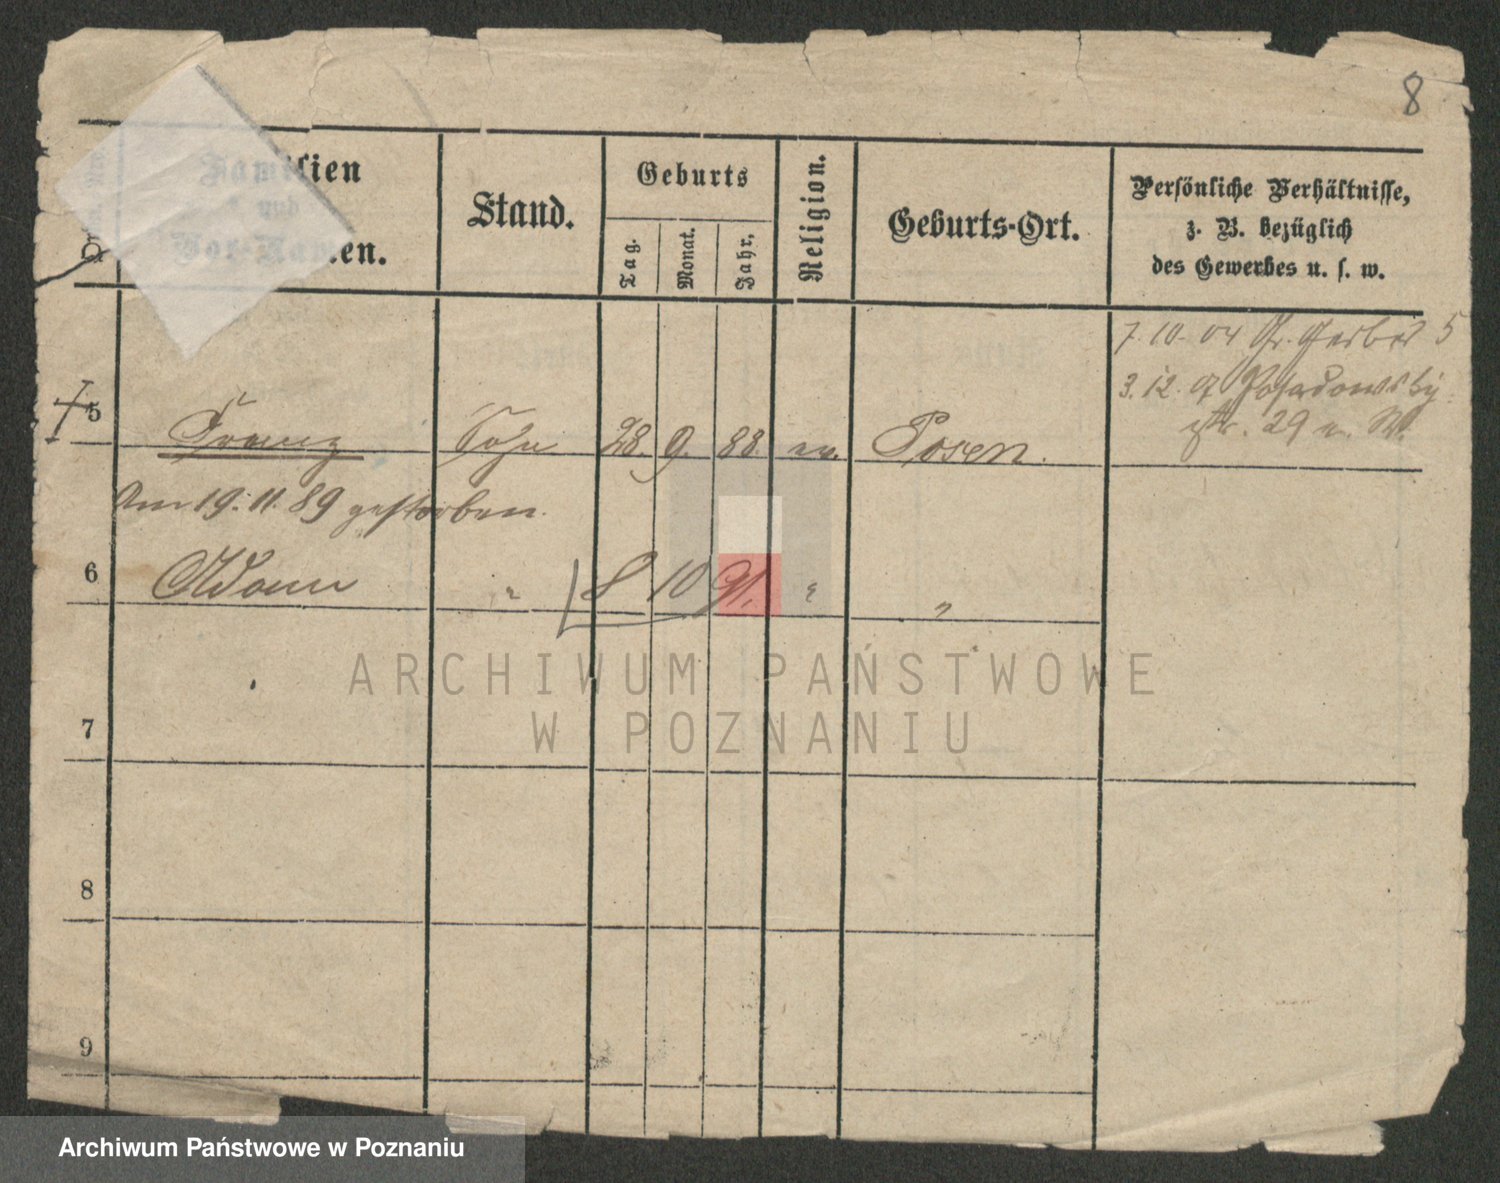 8
Familien
und
Vor-Namen.
Stand.
Geburts
Tag.
Monat.
Jahr.
Religion.
Geburts-Ort.
Persönliche Verhältnisse,
z. B. bezüglich
des Gewerbes u. s. w.
7. 10. 04 Gr. Gerber 5
3. 12. 07 Posadowsky
str. 29
5 Franz Sohn 28. 9. 88. ev. Posen.
Am 19. 11. 89 gestorben.
6 Adam " 8 10 91. " "
7
8
9
ARCHIWUM PAŃSTWOWE
W POZNANIU
Archiwum Państwowe w Poznaniu